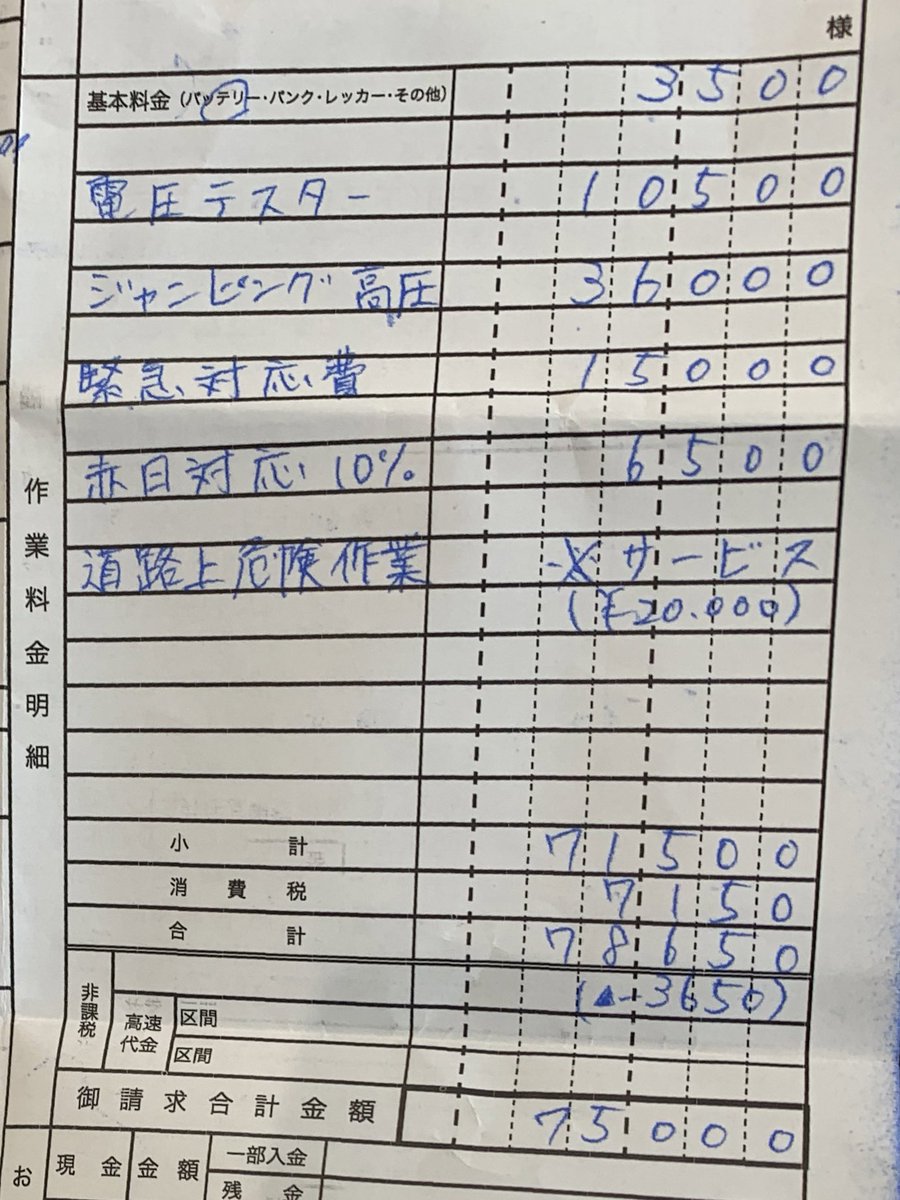 様
基本料金（バッテリー・パンク・レッカー・その他） 3500
電圧テスター 10500
ジャンピング高圧 36000
緊急対応費 15000
赤日対応10% 6500
道路上危険作業 ※サービス
(¥20.000)
作業料金明細
小計 71500
消費税 7150
合計 78650
(▲-3650)
非課税
高速代金
区間
区間
御請求合計金額 75000
お
現金 金額 一部入金
残金